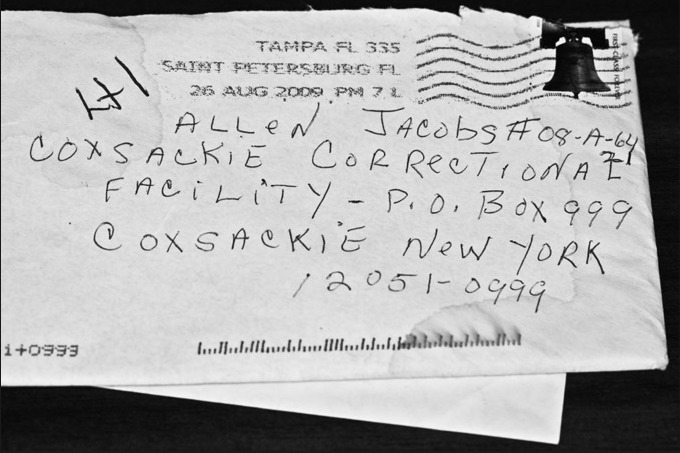 TAMPA FL 335
SAINT PETERSBURG FL
26 AUG 2009 PM 7 L
ALLEN JACOBS #08-A-64
COXSACKIE CORRECTIONAL
FACILITY - P.O. BOX 999
COXSACKIE NEW YORK
12051-0999
i+0999